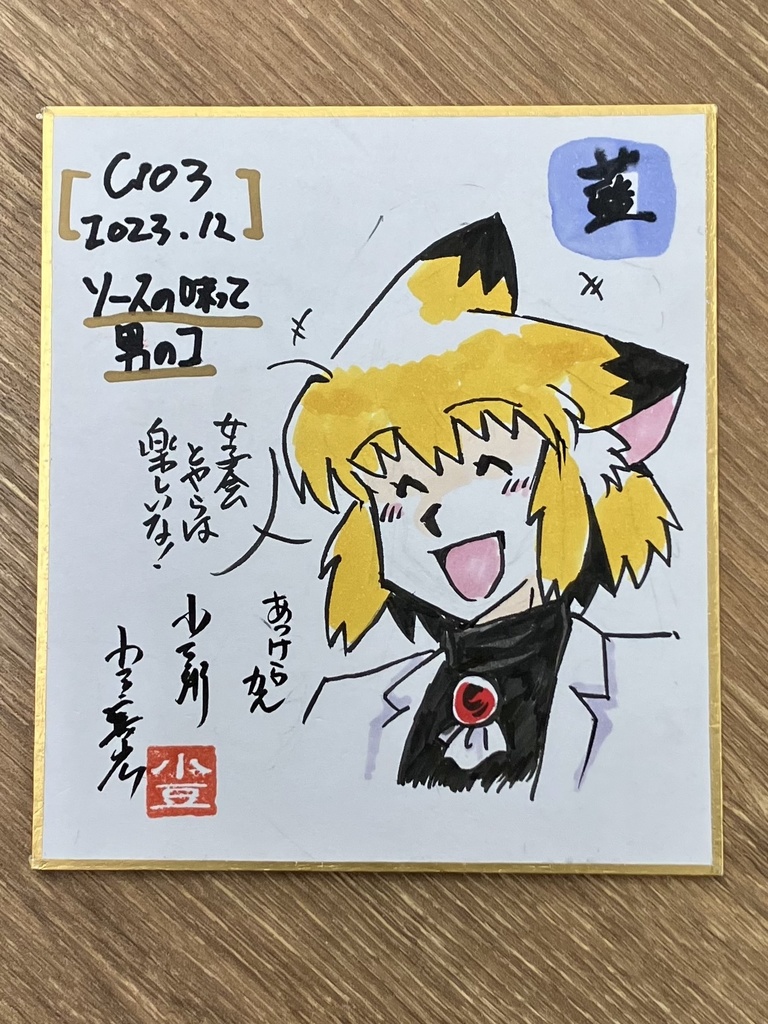 [C103
2023.12]
ソースの味って
男のコ
女子会
とやらは
楽しいな!
あっけらかん
小豆